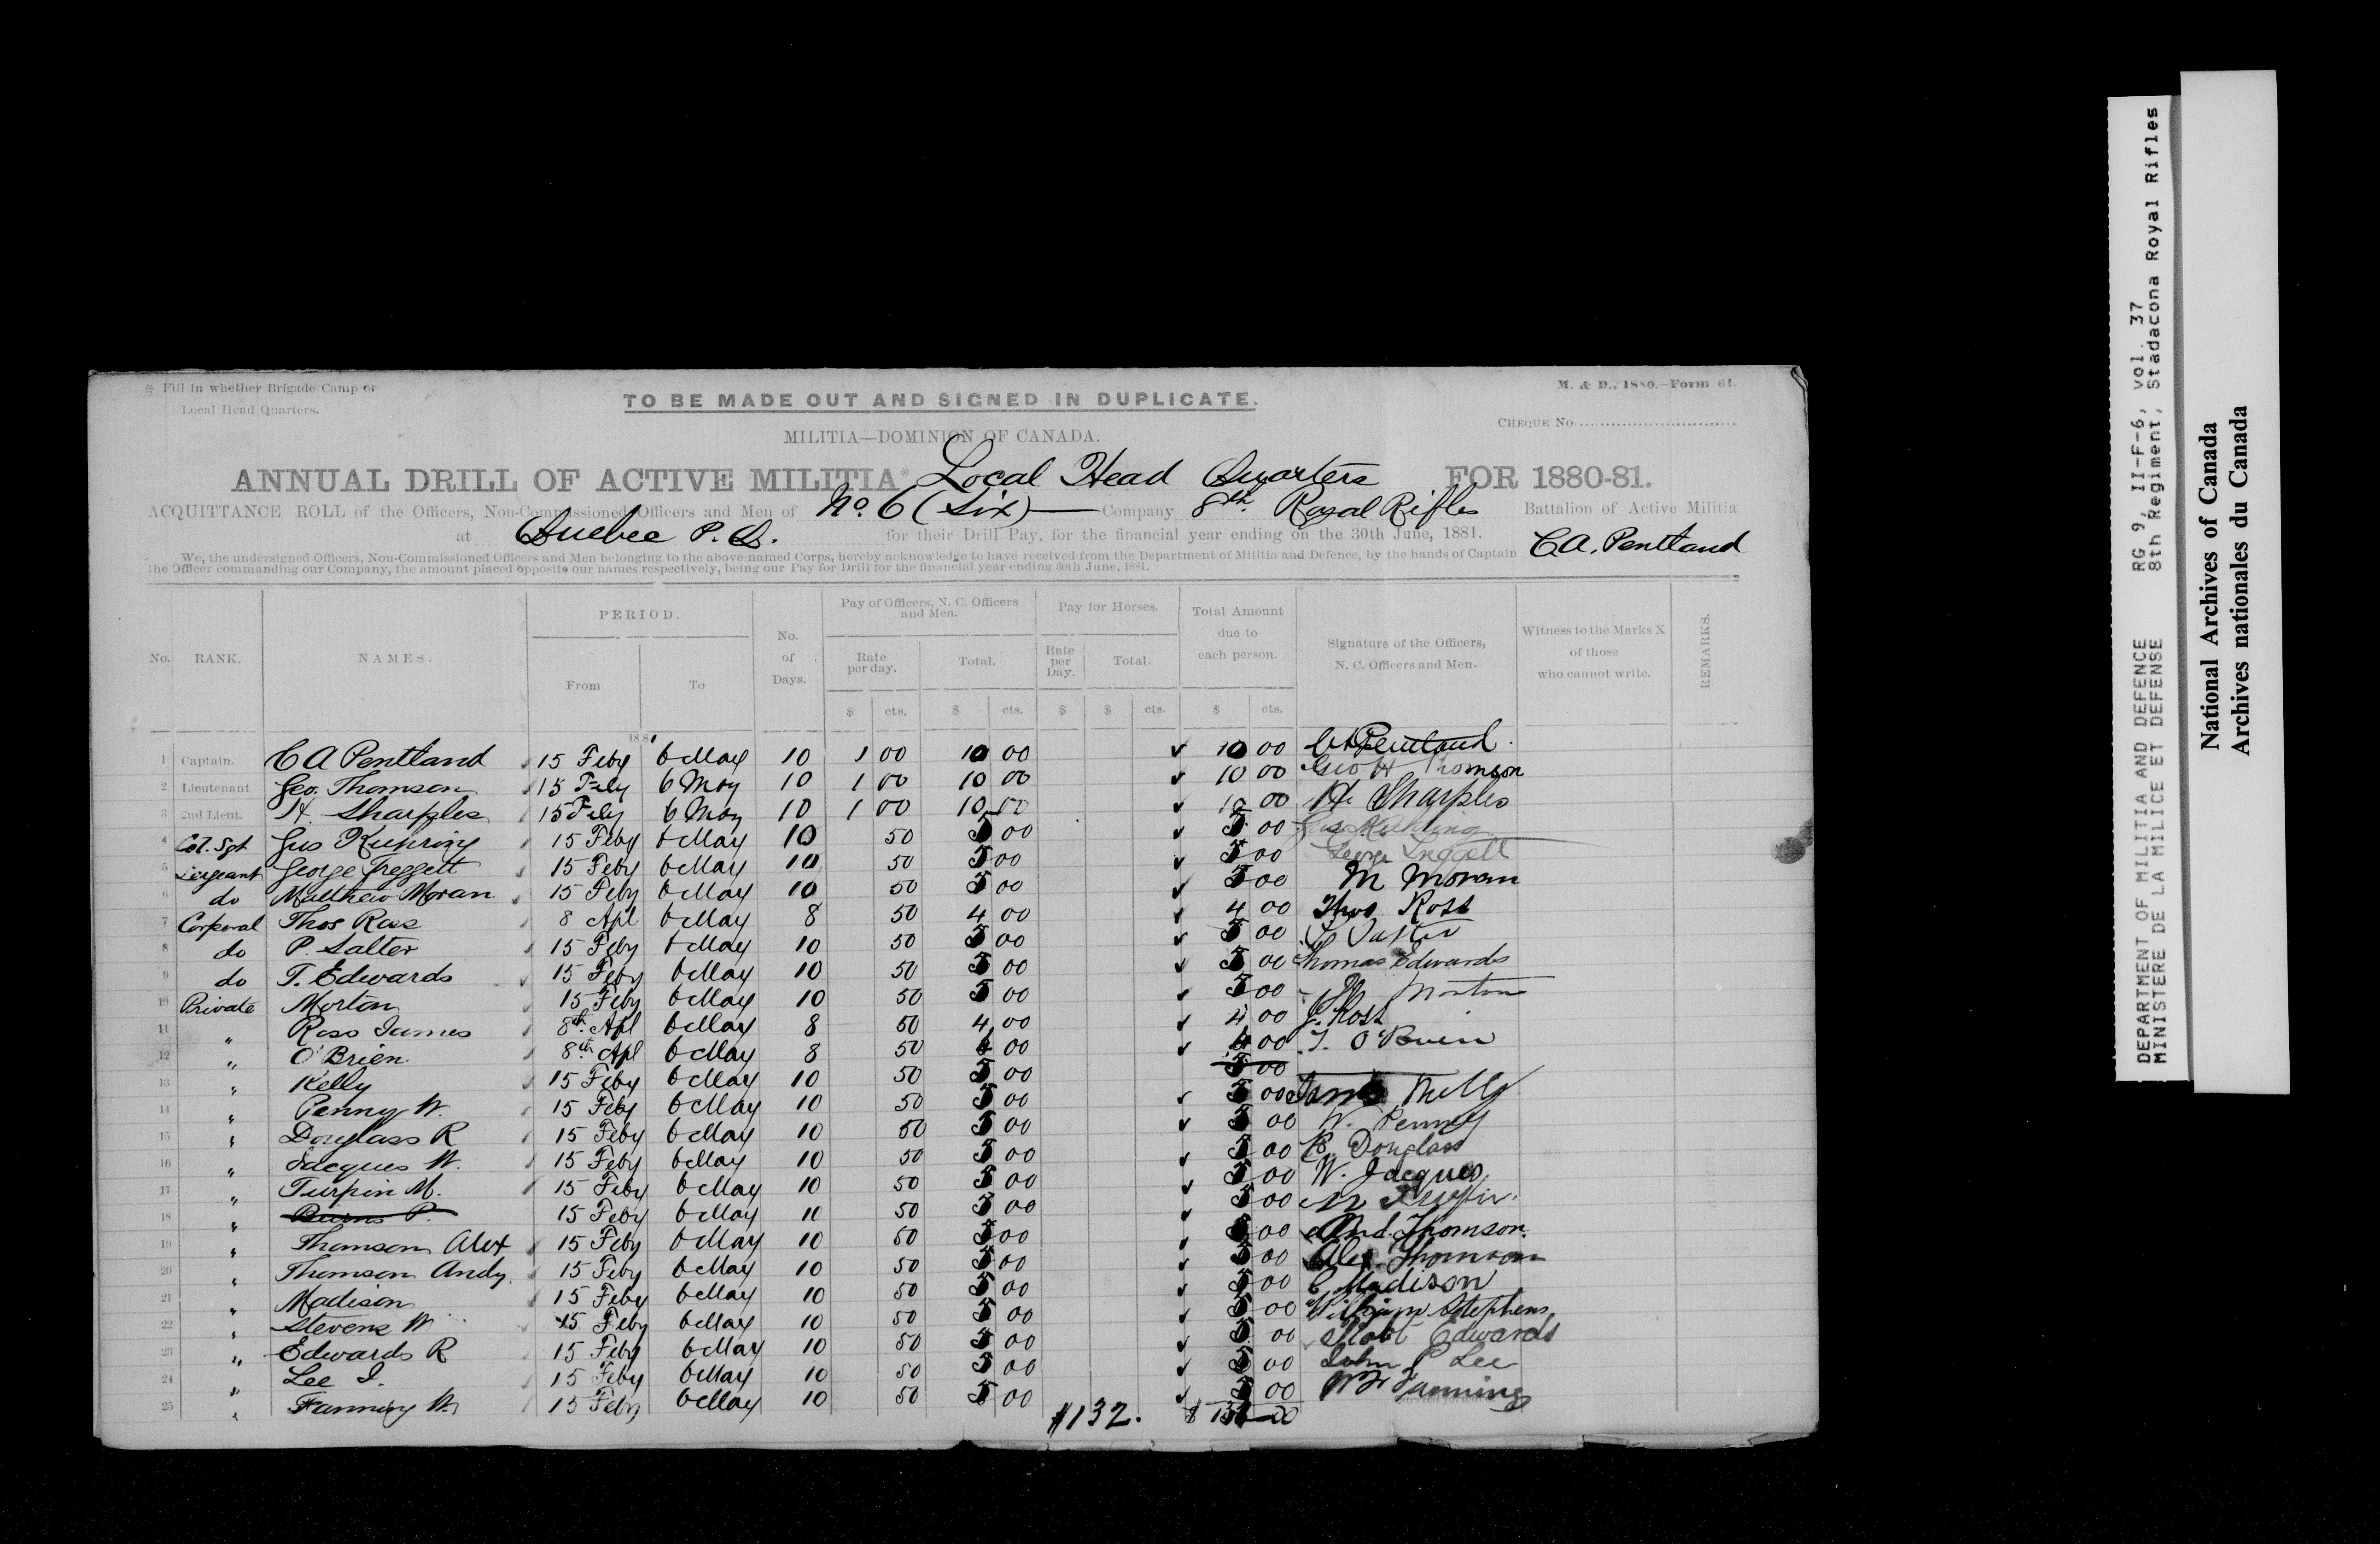 * Fill in whether Brigade Camp or
Local Head Quarters.
M. & D., 1880.—Form 61.
TO BE MADE OUT AND SIGNED IN DUPLICATE.
CHEQUE No.
MILITIA—DOMINION OF CANADA.
ANNUAL DRILL OF ACTIVE MILITIA* Local Head Quarters FOR 1880-81.
ACQUITTANCE ROLL of the Officers, Non-Commissioned Officers and Men of No. 6 (Six) Company 8th Royal Rifles Battalion of Active Militia
at Quebec P.Q. for their Drill Pay, for the financial year ending on the 30th June, 1881.
We, the undersigned Officers, Non-Commissioned Officers and Men belonging to the above-named Corps, hereby acknowledge to have received from the Department of Militia and Defence, by the hands of Captain C A. Pentland
the Officer commanding our Company, the amount placed opposite our names respectively, being our Pay for Drill for the financial year ending 30th June, 1881.
No. RANK. NAMES. PERIOD. From To No. of Days. Pay of Officers, N. C. Officers and Men. Rate per day. Total. Pay for Horses. Rate per Day. Total. Total Amount due to each person. Signature of the Officers, N. C. Officers and Men. Witness to the Marks X of those who cannot write. REMARKS.
$ cts. $ cts. $ $ cts. $ cts.
1881
1 Captain. C A Pentland 15 Feby 6 May 10 1 00 10 00 10 00 C A Pentland
2 Lieutenant Geo. Thomson 15 Feby 6 May 10 1 00 10 00 10 00 Geo H Thomson
3 2nd Lieut. H. Sharples 15 Feby 6 May 10 1 00 10 00 10 00 H. Sharples
4 Col. Sgt Gus Kuhring 15 Feby 6 May 10 50 5 00 5 00 Gus. Kuhring
5 Sergeant George Treggett 15 Feby 6 May 10 50 5 00 5 00 George Treggett
6 do Matthew Moran 15 Feby 6 May 10 50 5 00 5 00 M Moran
7 Corporal Thos Ross 8 Apl 6 May 8 50 4 00 4 00 Thos Ross
8 do P. Salter 15 Feby 6 May 10 50 5 00 5 00 P Salter
9 do T. Edwards 15 Feby 6 May 10 50 5 00 5 00 Thomas Edwards
10 Private Morton 15 Feby 6 May 10 50 5 00 5 00 Morton
11 " Ross James 8th Apl 6 May 8 50 4 00 4 00 J. Ross
12 " O'Brien 8th Apl 6 May 8 50 4 00 4 00 T. O'Brien
5 00
13 " Kelly 15 Feby 6 May 10 50 5 00 5 00 James Kelly
14 " Penny W. 15 Feby 6 May 10 50 5 00 5 00 W. Penny
15 " Douglass R 15 Feby 6 May 10 50 5 00 5 00 R. Douglass
16 " Jacques W. 15 Feby 6 May 10 50 5 00 5 00 W. Jacques
17 " Turpin M. 15 Feby 6 May 10 50 5 00 5 00 M Turpin
18 " Burns P. 15 Feby 6 May 10 50 5 00
19 " Thomson Alex 15 Feby 6 May 10 50 5 00 5 00 And. Thomson.
20 " Thomson Andy. 15 Feby 6 May 10 50 5 00 5 00 Alex Thomson
21 " Madison 15 Feby 6 May 10 50 5 00 5 00 C Madison
22 " Stevens W 15 Feby 6 May 10 50 5 00 5 00 William Stephens
23 " Edwards R 15 Feby 6 May 10 50 5 00 5 00 Robt Edwards
24 " Lee J. 15 Feby 6 May 10 50 5 00 5 00 John P Lee
25 " Fanning W. 15 Feby 6 May 10 50 5 00 5 00 Wm Fanning
$132.
DEPARTMENT OF MILITIA AND DEFENCE RG 9, II-F-6, vol. 37
MINISTERE DE LA MILICE ET DEFENSE 8th Regiment, Stadacona Royal Rifles
National Archives of Canada
Archives nationales du Canada